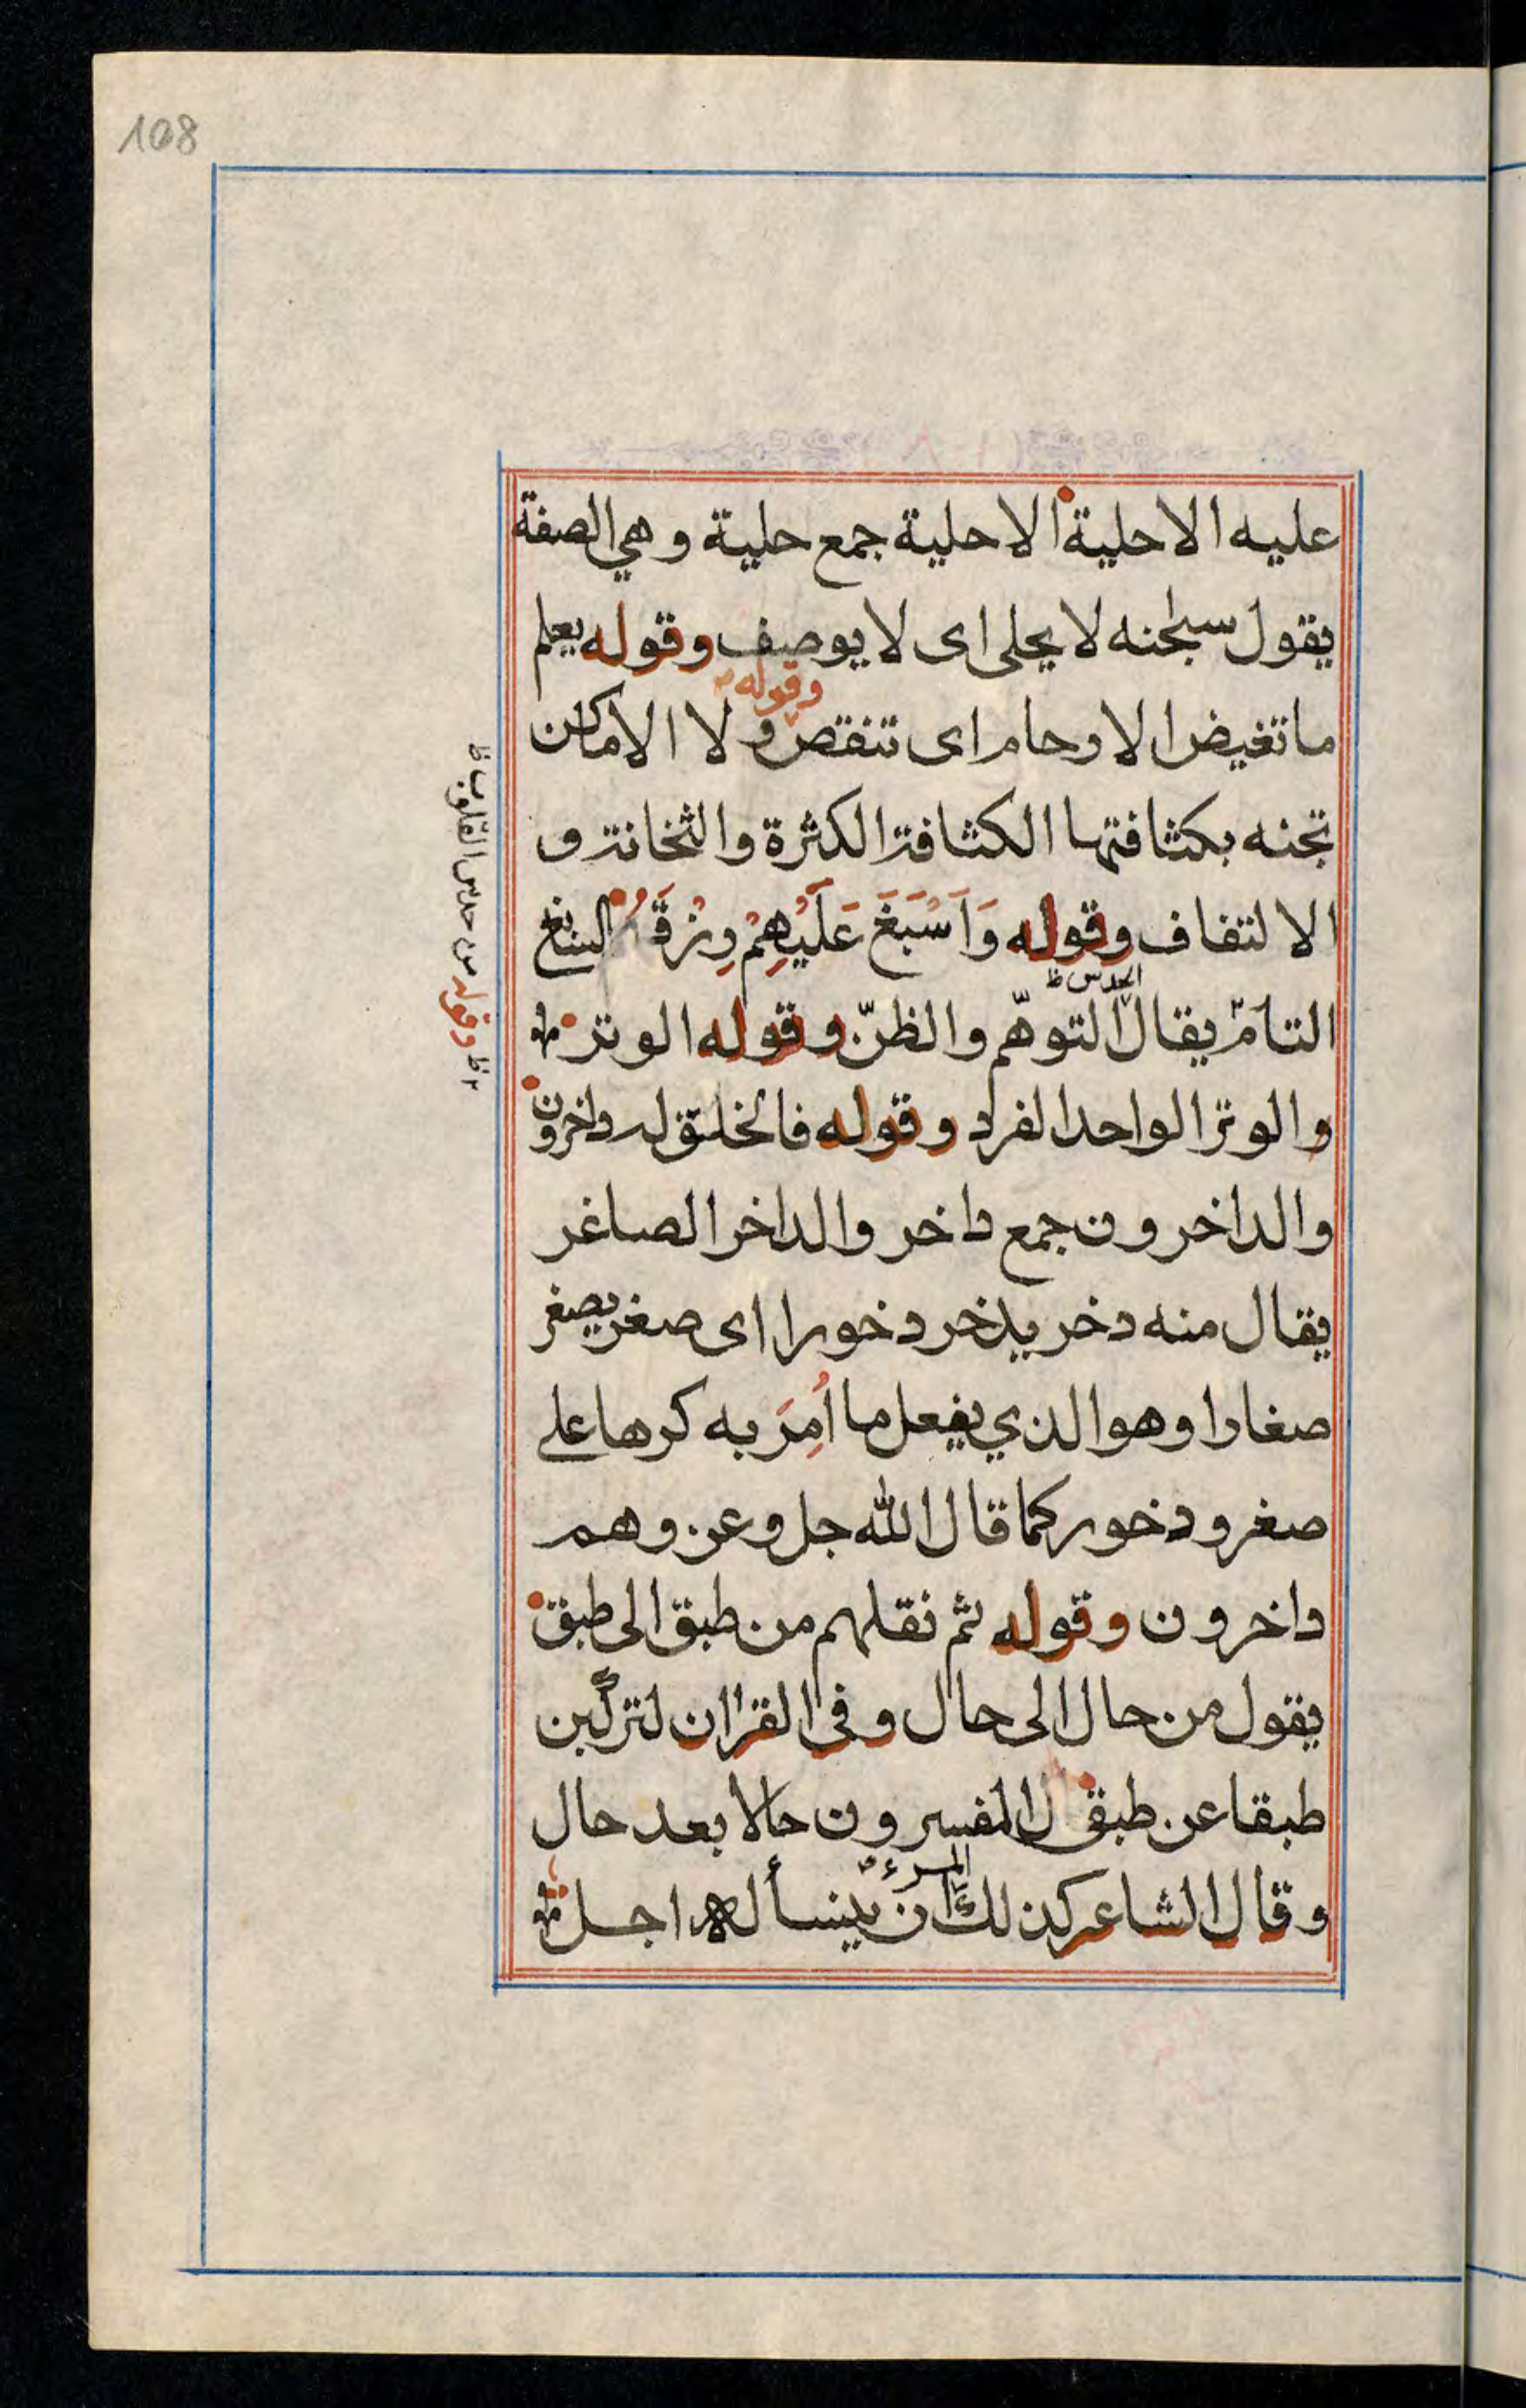 108
عليه الاحلية الاحلية جمع حلية وهي الصفة
يقول سبحنه لا يحلى اى لا يوصف وقوله يعلم
وقوله
ما تغيض الارحام اى تنقص و لا الاماكن
تجنه بكثافتها الكثافة الكثرة والثخانة و
الالتفاف وقوله وَاَسْبَغَ عَلَيْهِمْ رِزقَهُ السابغ
الحدس ظ
التامّ يقال التوهّم والظنّ وقوله الوتر
والوتر الواحد الفرد وقوله فالخلق له داخرون
والداخرون جمع داخر والداخر الصاغر
يقال منه دخر يدخر دخورا اى صغر يصغر
صغارا وهو الذي يفعل ما اُمِرَ به كرها على
صغر ودخور كما قال الله جل وعز وهم
داخرون وقوله ثم نقلهم من طبق الى طبق
يقول من حال الى حال وفى القران لتركبن
طبقا عن طبق ل المفسرون حالا بعد حال
المرء
وقال الشاعر كذلك ان ينسأ له اجل
وقوله من حدس القلوب ظ